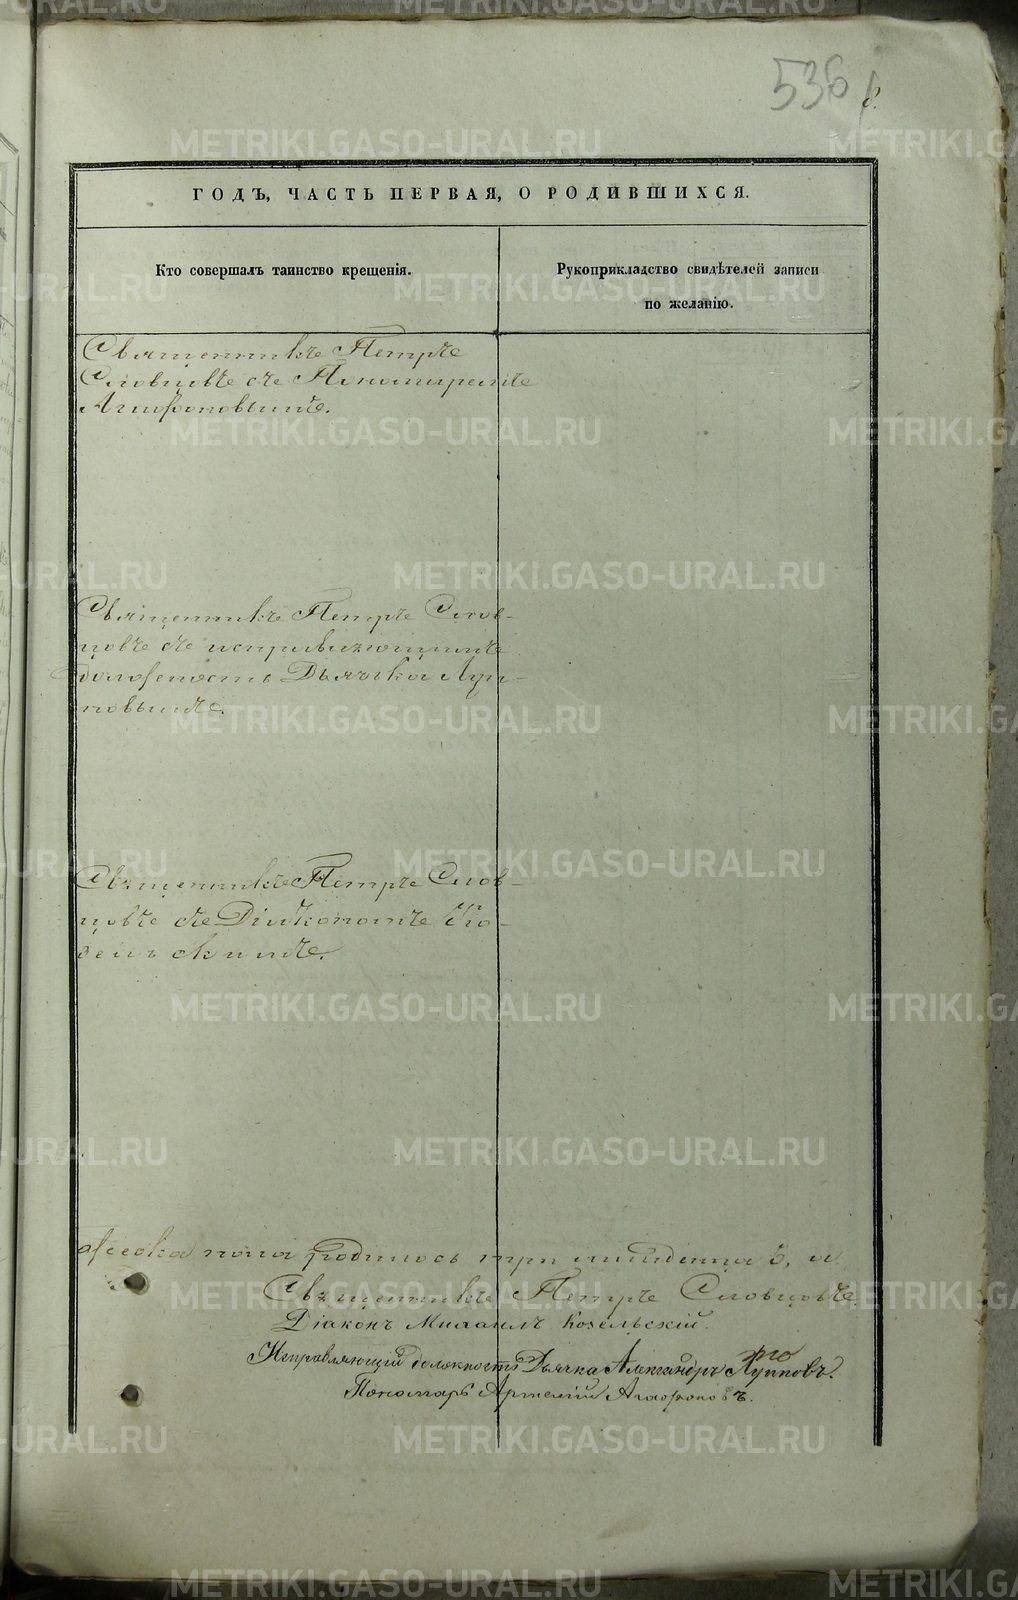 536
8.
ГОДЪ, ЧАСТЬ ПЕРВАЯ, О РОДИВШИХСЯ.
Кто совершалъ таинство крещенія.
Рукоприкладство свидѣтелей записи
по желанію.
Священникъ Петръ
Словцовъ съ Пономаремъ
Агафоновымъ.
Священникъ Петръ Слов-
цовъ съ исправляющимъ
должность Дьячка Луп-
повымъ.
Священникъ Петръ Слов-
цовъ съ Діакономъ Ко-
зельскимъ.
пола родилось три младенца 3, а
Священникъ Петръ Словцовъ.
Діаконъ Михаилъ Козельскій.
Исправляющій должность Дьячка Александръ Лупповъ.
Пономарь Артемій Агафоновъ.
METRIKI.GASO-URAL.RU